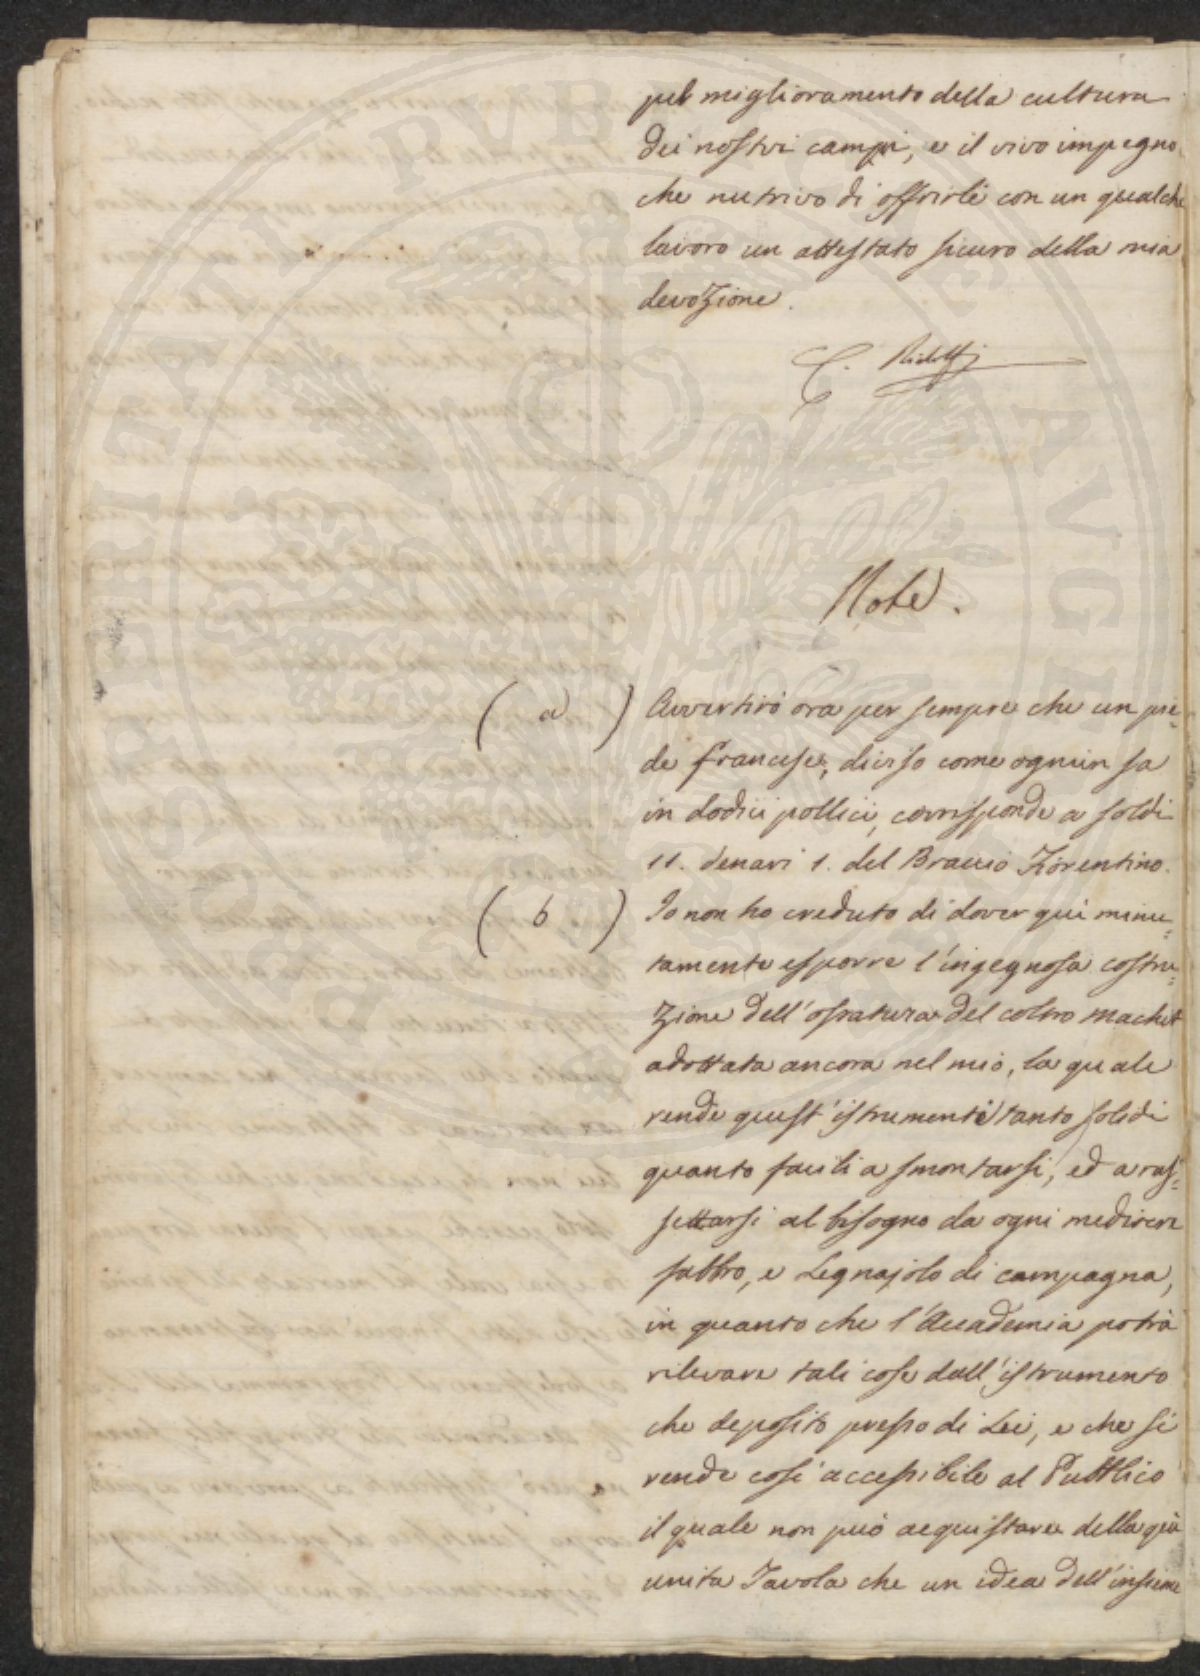 pel miglioramento della cultura
dei nostri campi, e il vivo impegno
che nutrivo di offrirle con un qualche
lavoro un attestato sicuro della mia
devozione.
C. Ridolfi
Note.
(a) Avvertirò ora per sempre che un pie=
de francese, diviso come ognun sa
in dodici pollici, corrisponde a soldi
11. denari 1. del Braccio Fiorentino.
(b) Io non ho creduto di dover quì minu=
tamente esporre l'ingegnosa costru=
zione dell'ossatura del coltro Machet
adottata ancora nel mio, la quale
rende quest'istrumenti tanto solidi
quanto facili a smontarsi, ed a ras=
settarsi al bisogno da ogni mediocre
fabbro, e Legnajolo di campagna,
in quanto che l'Accademia potrà
rilevare tali cose dall'istrumento
che deposito presso di Lei, e che si
rende così accessibile al Pubblico
il quale non può acquistare dalla quì
unita Tavola che un idea dell'insieme
PROSPERITATI PVBLICAE AVGENDAE